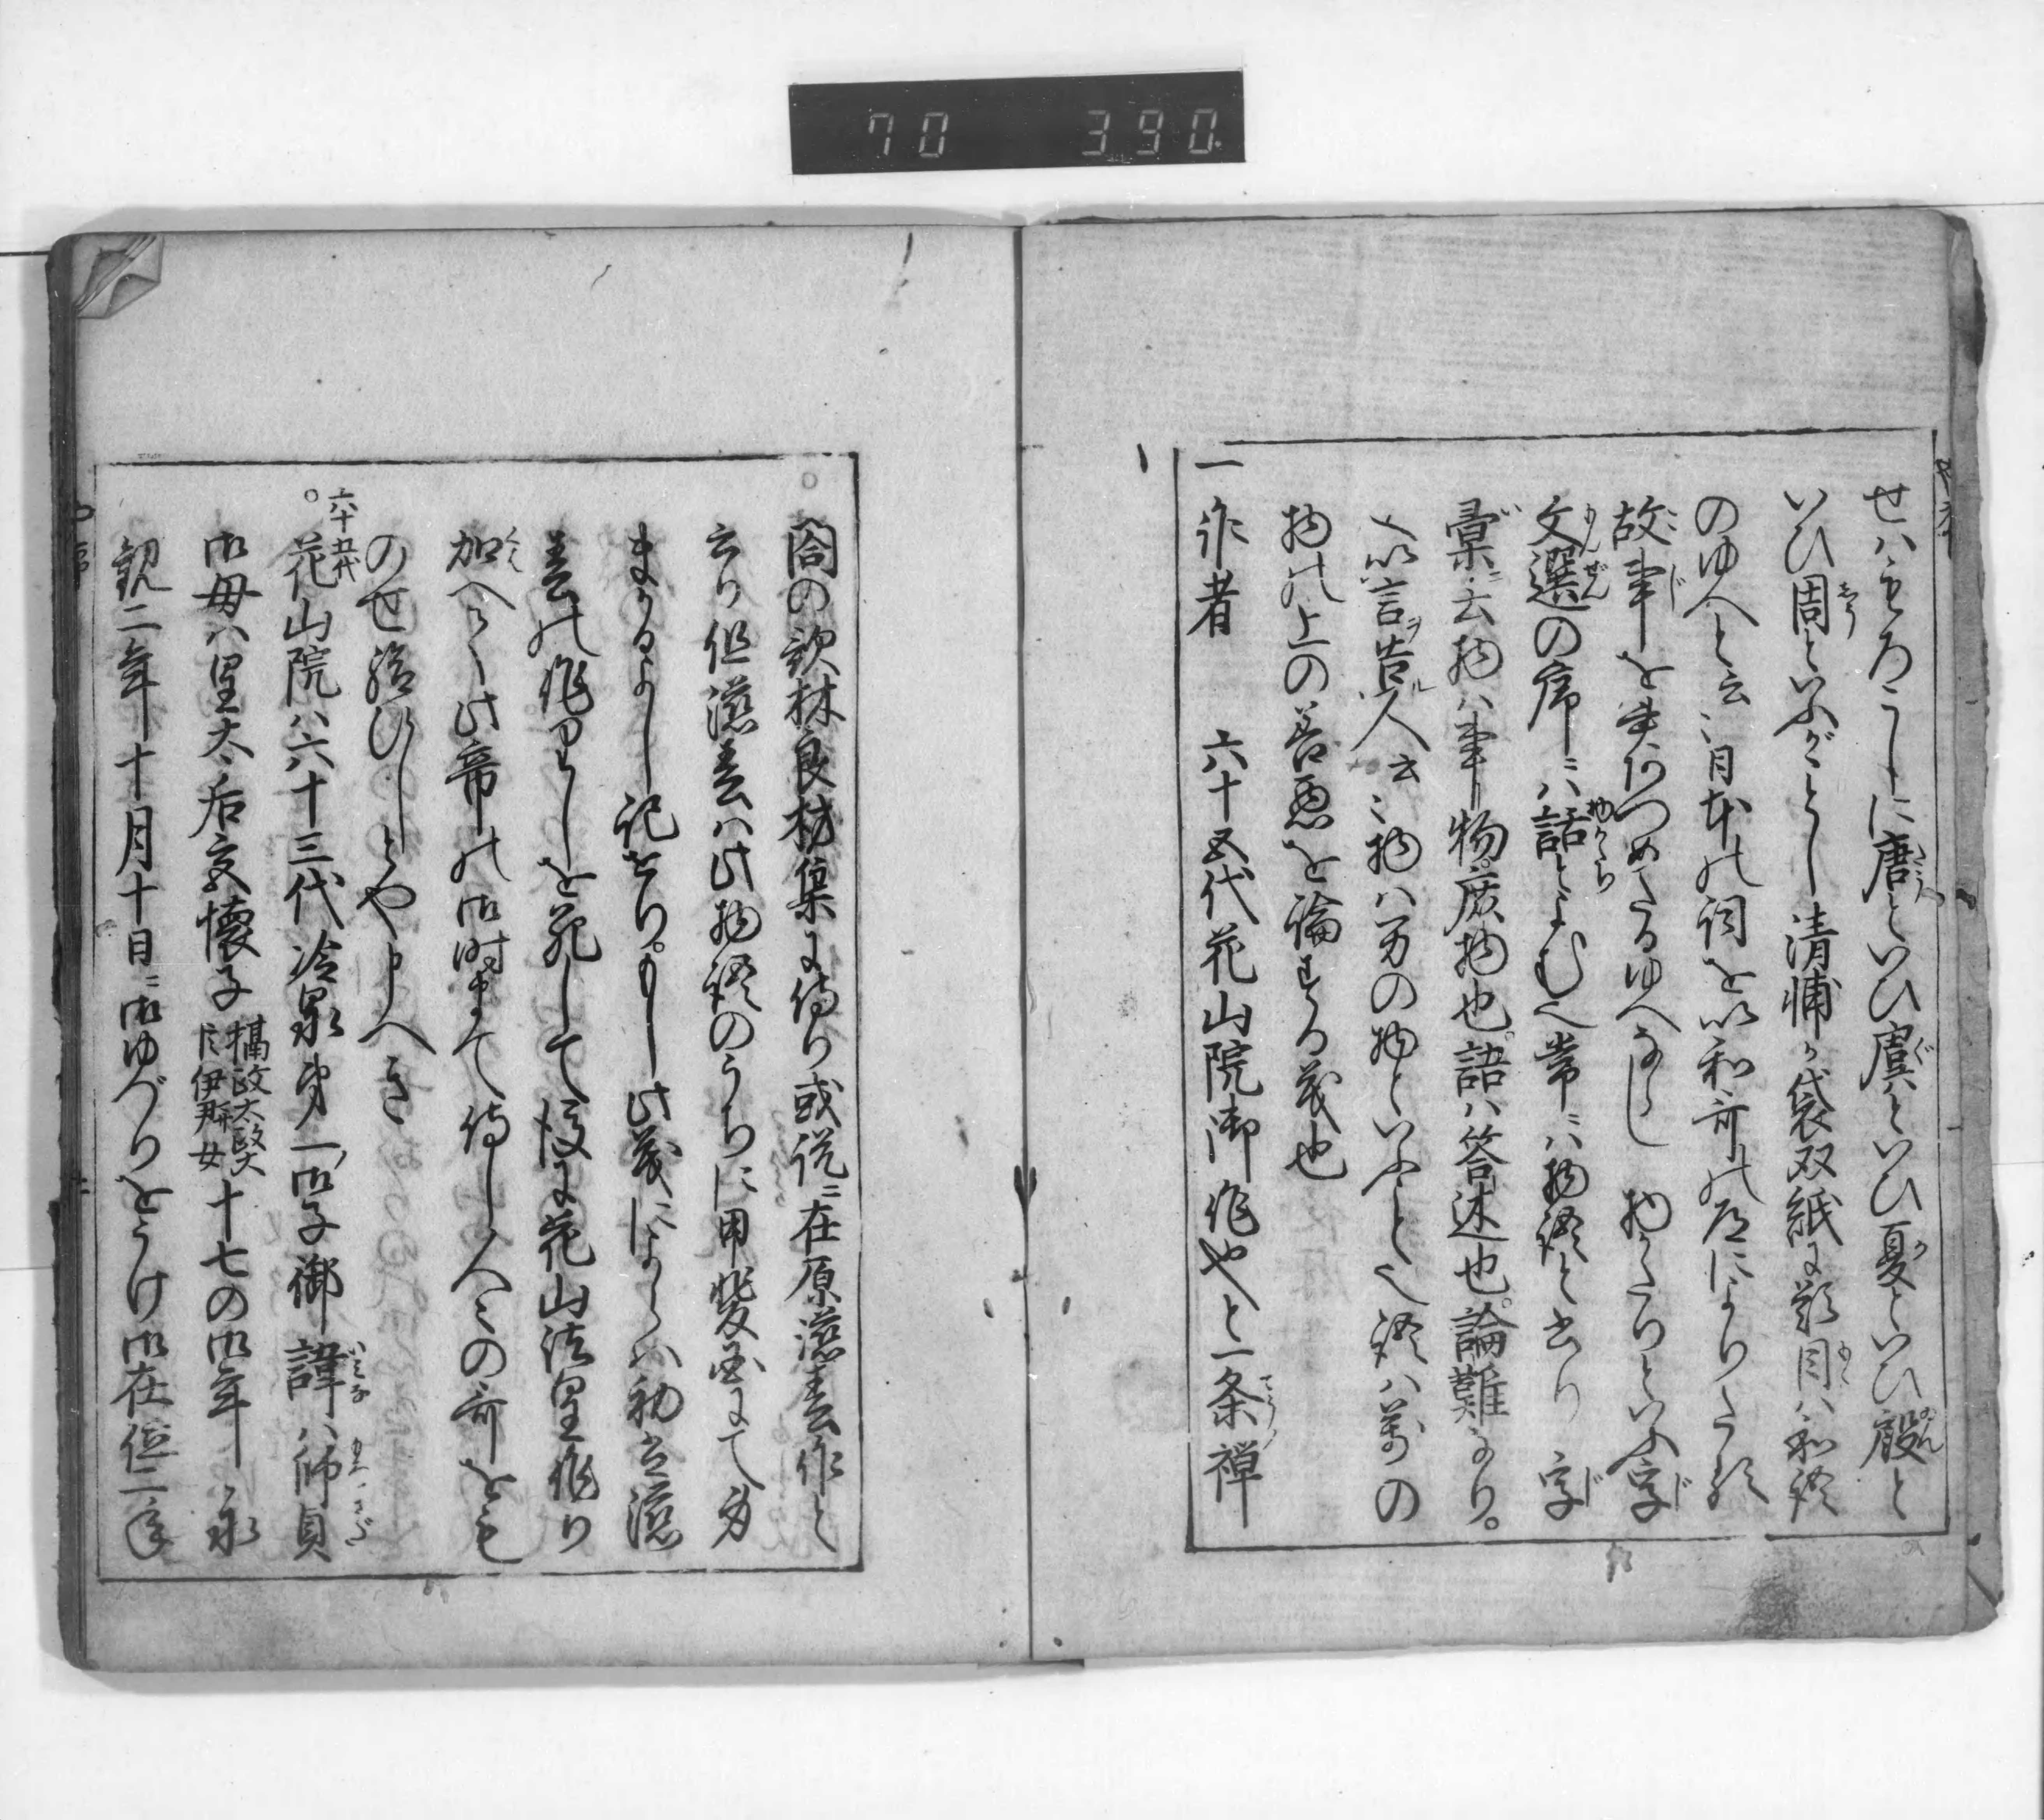 70 390
せハもろこしに唐といひ虞といひ夏といひ殷と
いひ周といふがことし清輔か袋双紙に題目ハ和語
のゆへと云〻日本の詞を以和哥の
故事をあつめたるゆへなるへし物かたりといふ字
文選の序ニハ話とよむ也常ニハ物語と書り字
彙ニ云物ハ事物庶物也。語ハ答述也。論難なり。
又以言告人云〻物ハ万の物といふと也語ハ万の
物の上の善悪を論する義也
一作者 六十五代花山院御作也と一条禅
閤の歌林良材集に侍り或説ニ在原滋春作と
云り但滋春ハ此物語のうちに甲斐国にて身
まかるよし記せり。もし此義によらハ初を滋
春の作りしを死して後に花山法皇作り
加へ此帝の御時まて侍し人〻の哥をも
のせ給ひしとや申へき
六十五代
花山院ハ六十三代冷泉第一ノ御子御諱ハ師貞
御母ハ皇太后宮懐子摂政太政大臣伊尹女十七の御年永
観二年十月十日ニ御ゆづりをうけ御在位二年